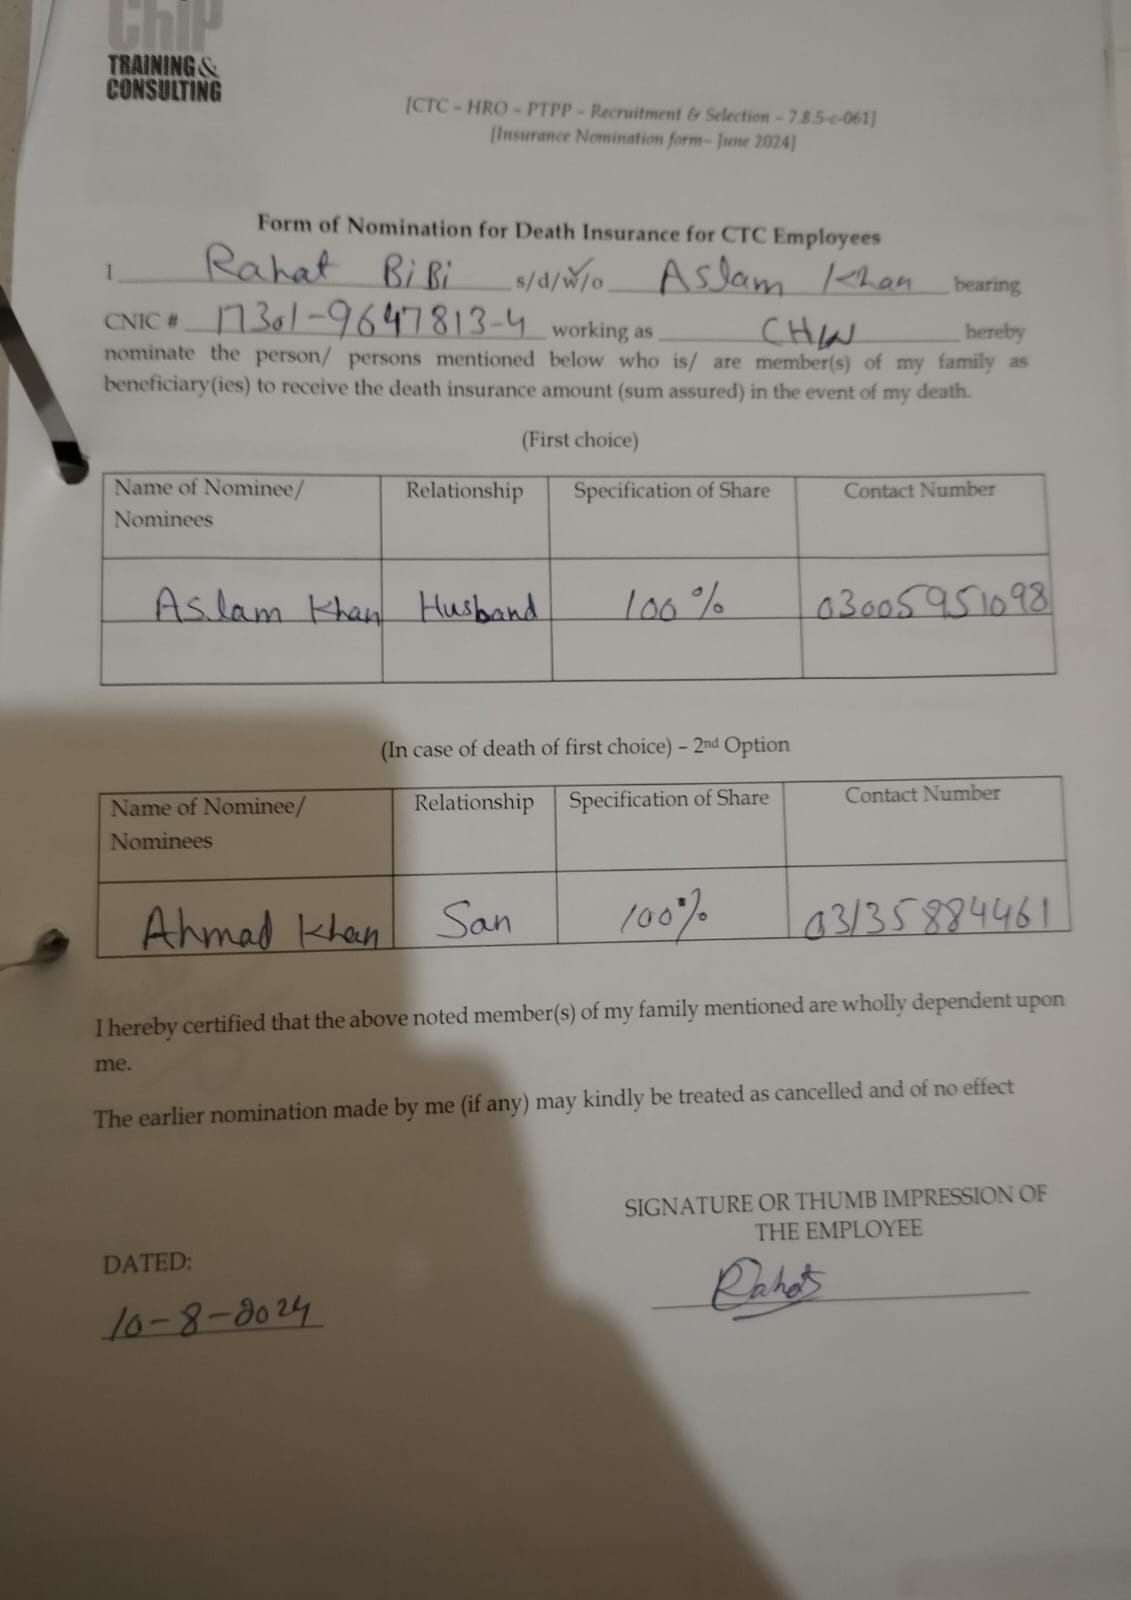 ChiP
TRAINING &
CONSULTING
[CTC – HRO – PTPP – Recruitment & Selection – 7.8.5-c-061]
[Insurance Nomination form– June 2024]
Form of Nomination for Death Insurance for CTC Employees
I Rahat BiBi s/d/w/o Aslam Khan bearing
CNIC # 17301-9647813-4 working as CHW hereby
nominate the person/ persons mentioned below who is/ are member(s) of my family as
beneficiary(ies) to receive the death insurance amount (sum assured) in the event of my death.
(First choice)
Name of Nominee/ Relationship Specification of Share Contact Number
Nominees
Aslam Khan Husband 100% 03005951098
(In case of death of first choice) – 2nd Option
Name of Nominee/ Relationship Specification of Share Contact Number
Nominees
Ahmad Khan San 100% 03135884461
I hereby certified that the above noted member(s) of my family mentioned are wholly dependent upon
me.
The earlier nomination made by me (if any) may kindly be treated as cancelled and of no effect
SIGNATURE OR THUMB IMPRESSION OF
THE EMPLOYEE
DATED:
Rahat
10-8-2024